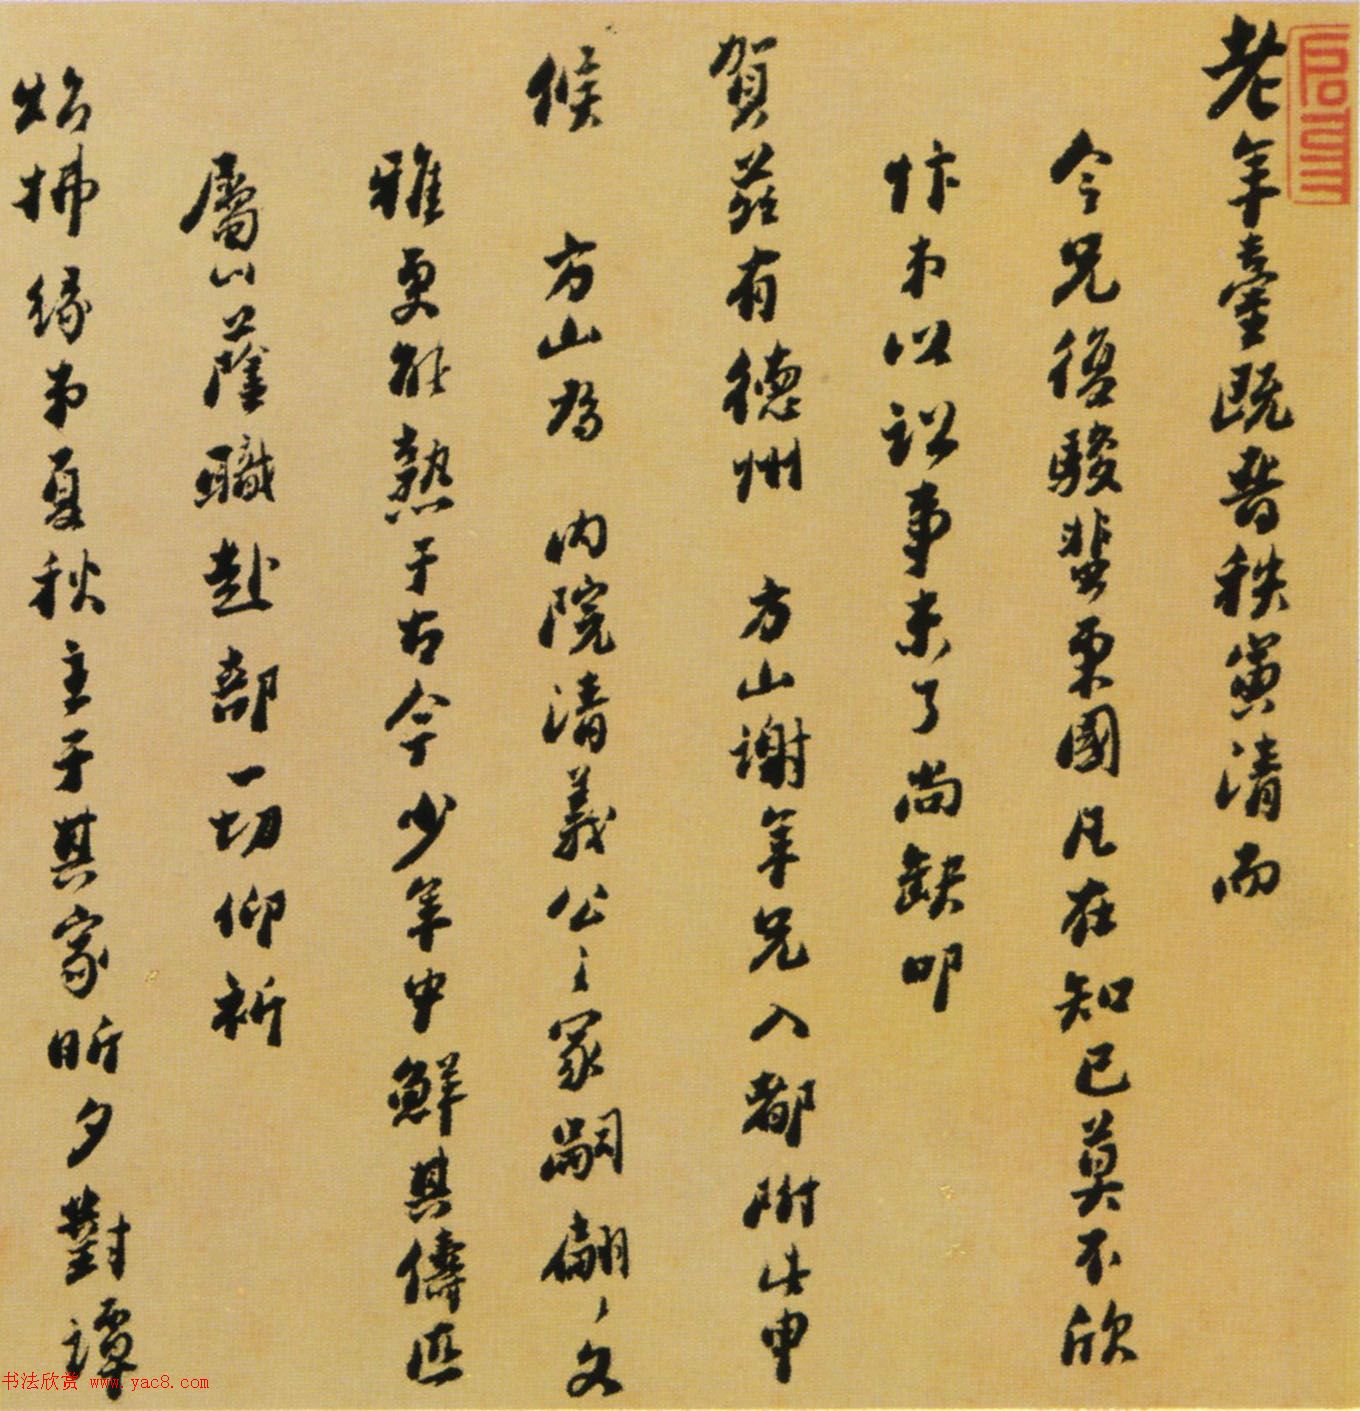 老年臺既晉秩寅清而
令兄復駿蜚東國凡在知己莫不欣
忭弟以訟事未了尚缺叩
賀茲有德州 方山謝年兄入都附此申
候 方山為 內院清義公之冢嗣翩翩文
雅更能熱于古今少年中鮮其儔匹
屬以蔭職赴部一切仰祈
炤拂緣弟夏秋主于其家昕夕對譚
书法欣赏 www.yac8.com